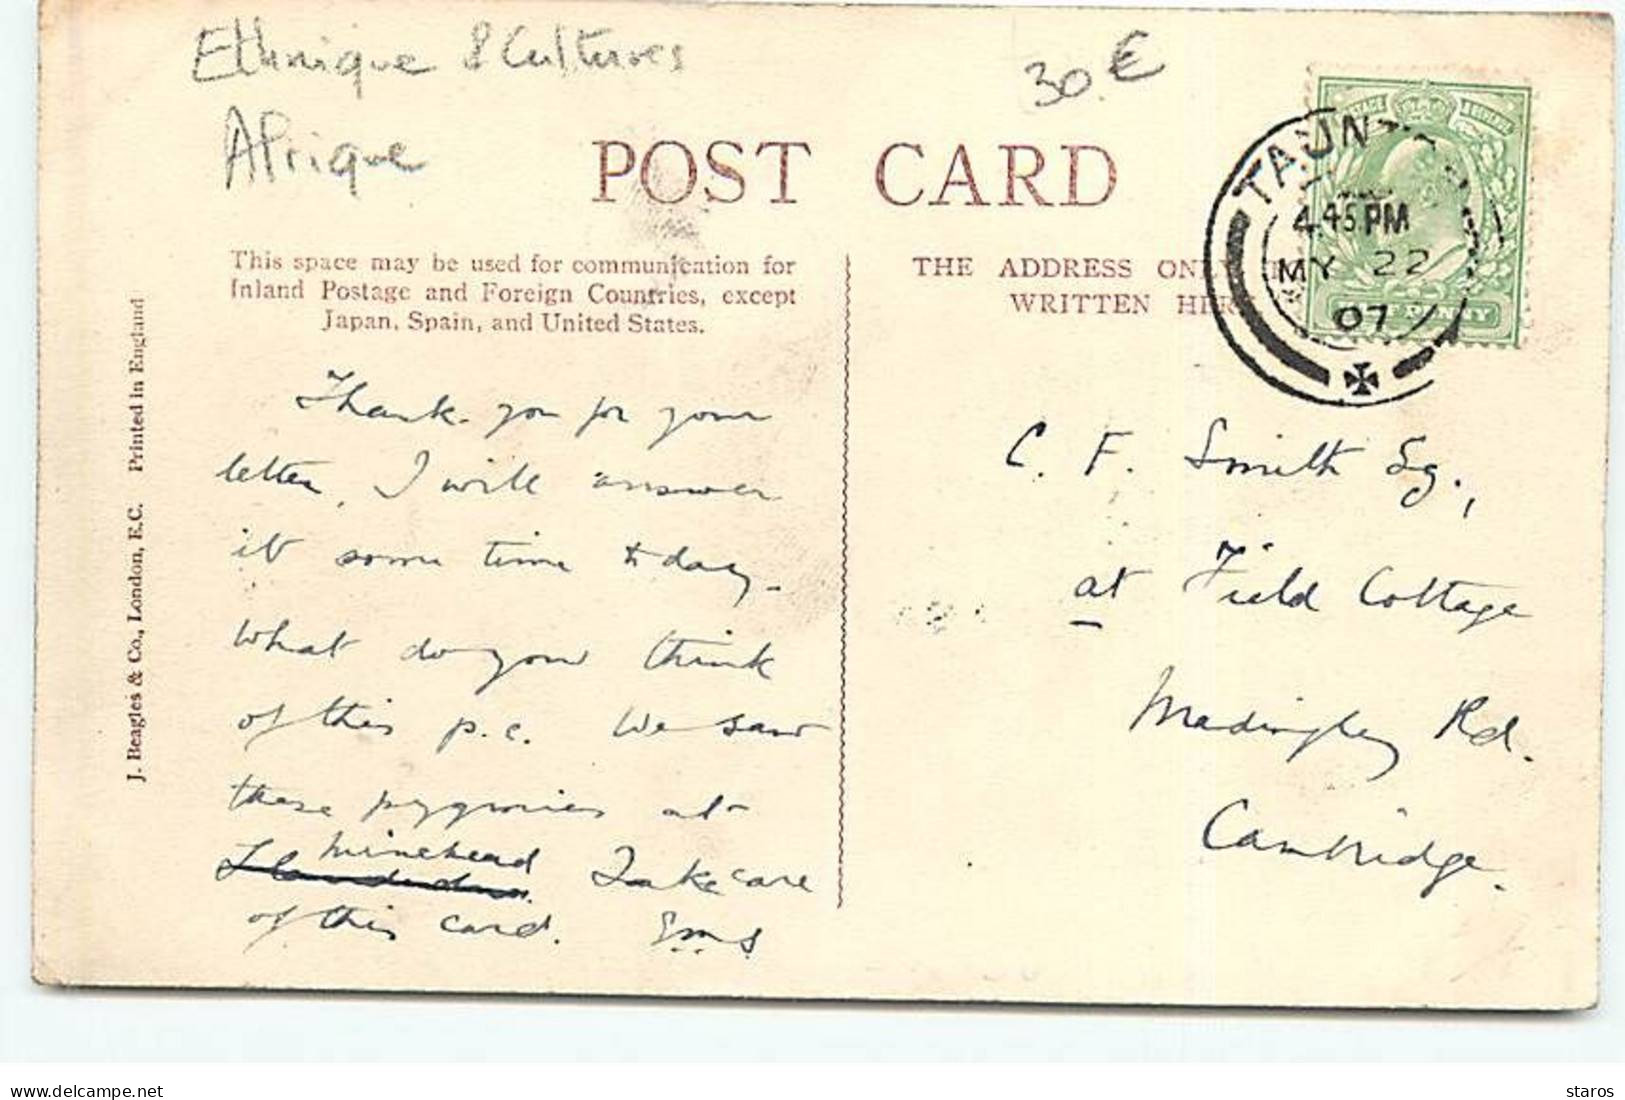 Ethnique & Cultures
Afrique
30.€
POST CARD
This space may be used for communication for
Inland Postage and Foreign Countries, except
Japan, Spain, and United States.
THE ADDRESS ONLY
WRITTEN HERE
TAUNTON
4.45 PM
MY 22
07
POSTAGE & REVENUE
HALF PENNY
J. Beagles & Co., London, E.C. Printed in England
Thank you for your
letter, I will answer
it some time to day.
What do you think
of this p.c. We saw
these pygmies at
Minehead
Take care
of this card. EMS
C. F. Smith Esq.,
at Field Cottage
Madingley Rd.
Cambridge.
delcampe.net
staros